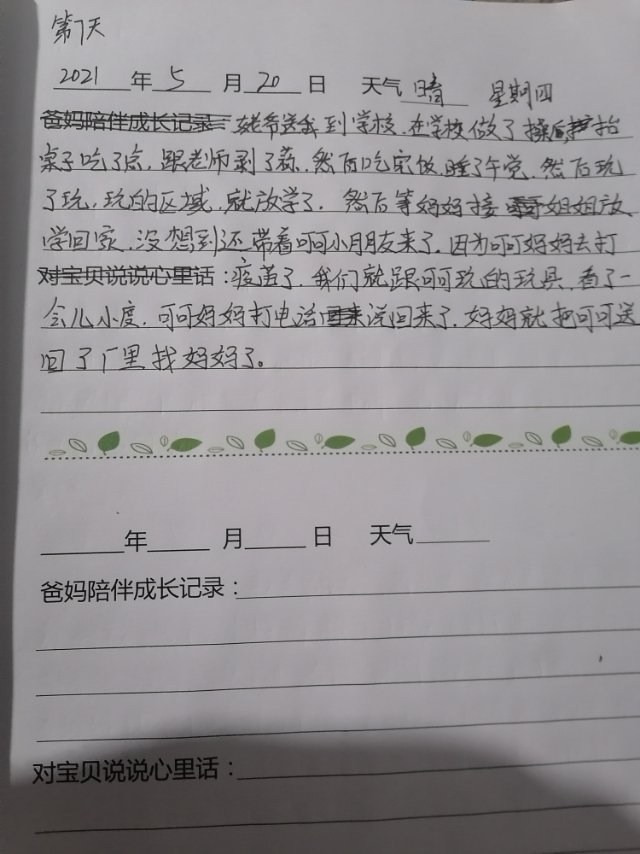 第7天
2021年5月20日 天气晴 星期四
爸妈陪伴成长记录：姥爷送我到学校，在学校做了操后，抬
桌子吃了点，跟老师剥了蒜，然后吃完饭，睡了午觉，然后玩
了玩，玩的区域，就放学了。然后等妈妈接姐姐放
学回家，没想到还带着可可小朋友来了，因为可可妈妈去打
对宝贝说说心里话：疫苗了，我们就跟可可玩的玩具，看了一
会儿小度，可可妈妈打电话说回来了，妈妈就把可可送
回了厂里找妈妈了。
年 月 日 天气
爸妈陪伴成长记录：
对宝贝说说心里话：